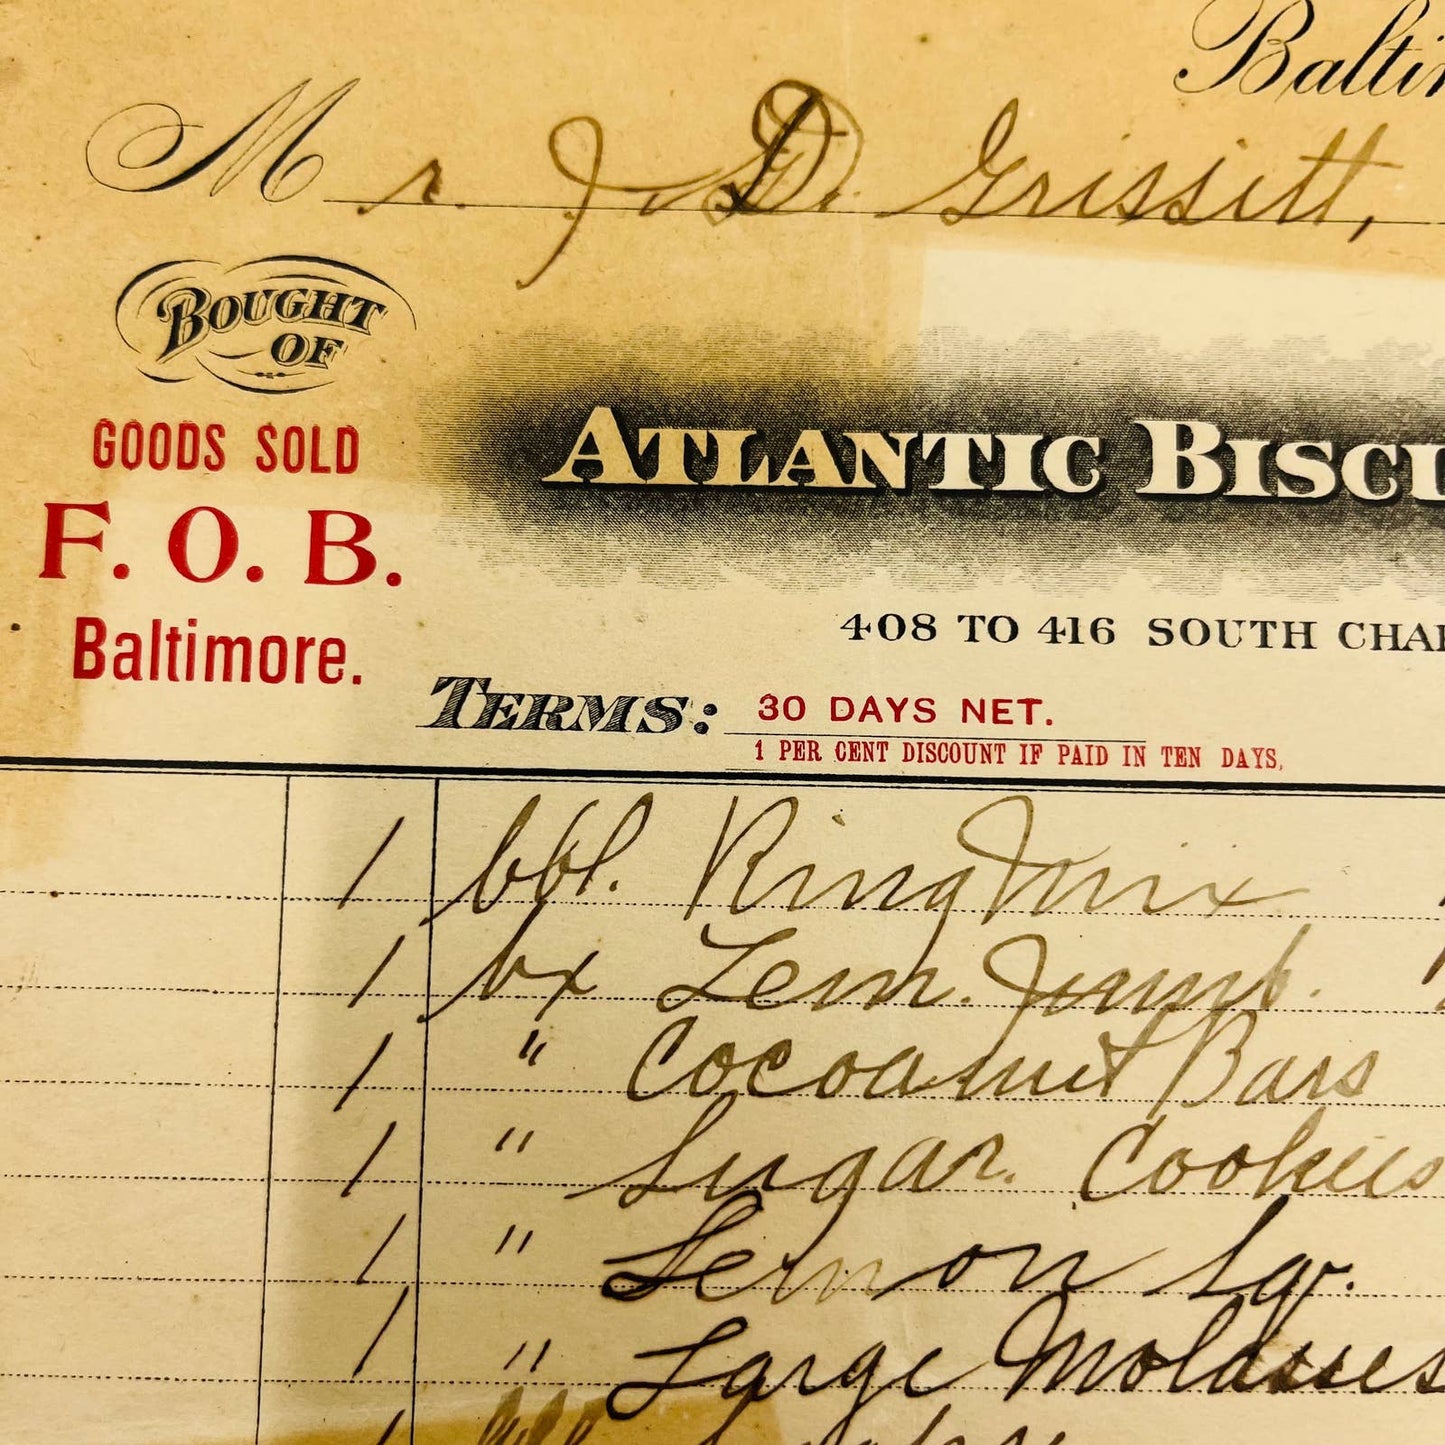 Baltim
Mr. J. D. Grissitt,
BOUGHT
OF
GOODS SOLD
F. O. B.
Baltimore.
ATLANTIC BISCU
408 TO 416 SOUTH CHAR
TERMS: 30 DAYS NET.
1 PER CENT DISCOUNT IF PAID IN TEN DAYS.
1 bbl. King Mix
1 bx Lem. Jumb.
1 " Cocoanut Bars
1 " Sugar. Cookies
1 " Lemon Sq.
1 " Large Molasses
1